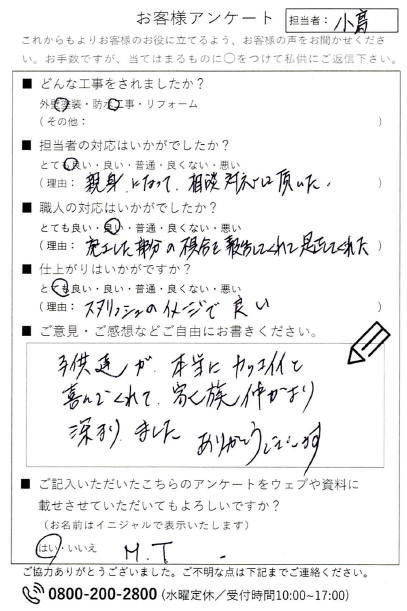 お客様アンケート 担当者: 小高
これからもよりお客様のお役に立てるよう、お客様の声をお聞かせくださ
い。お手数ですが、当てはまるものに○をつけて私供にご返信下さい。
■ どんな工事をされましたか?
外壁塗装・防水工事・リフォーム
(その他: )
■ 担当者の対応はいかがでしたか?
とても良い・良い・普通・良くない・悪い
(理由: 親身になって、相談対応して頂いた。 )
■ 職人の対応はいかがでしたか?
とても良い・良い・普通・良くない・悪い
(理由: 施工した部分の具合を報告してくれて是正してくれた
■ 仕上がりはいかがですか?
とても良い・良い・普通・良くない・悪い
(理由: スタイリッシュのイメージで良い )
■ ご意見・ご感想などご自由にお書きください。
子供達が、本当にカッコイイと
喜んでくれて、家族仲がより
深まりました ありがとうございます
■ ご記入いただいたこちらのアンケートをウェブや資料に
載せさせていただいてもよろしいですか?
(お名前はイニシャルで表示いたします)
はい・いいえ M.T
ご協力ありがとうございました。ご不明な点は下記までご連絡ください。
0800-200-2800 (水曜定休/受付時間10:00~17:00)